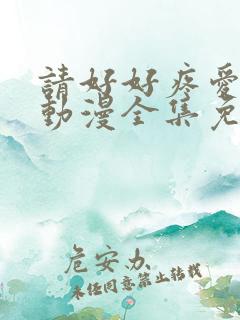 請好好疼愛
動漫全集免
危安办
未经同意禁止转载